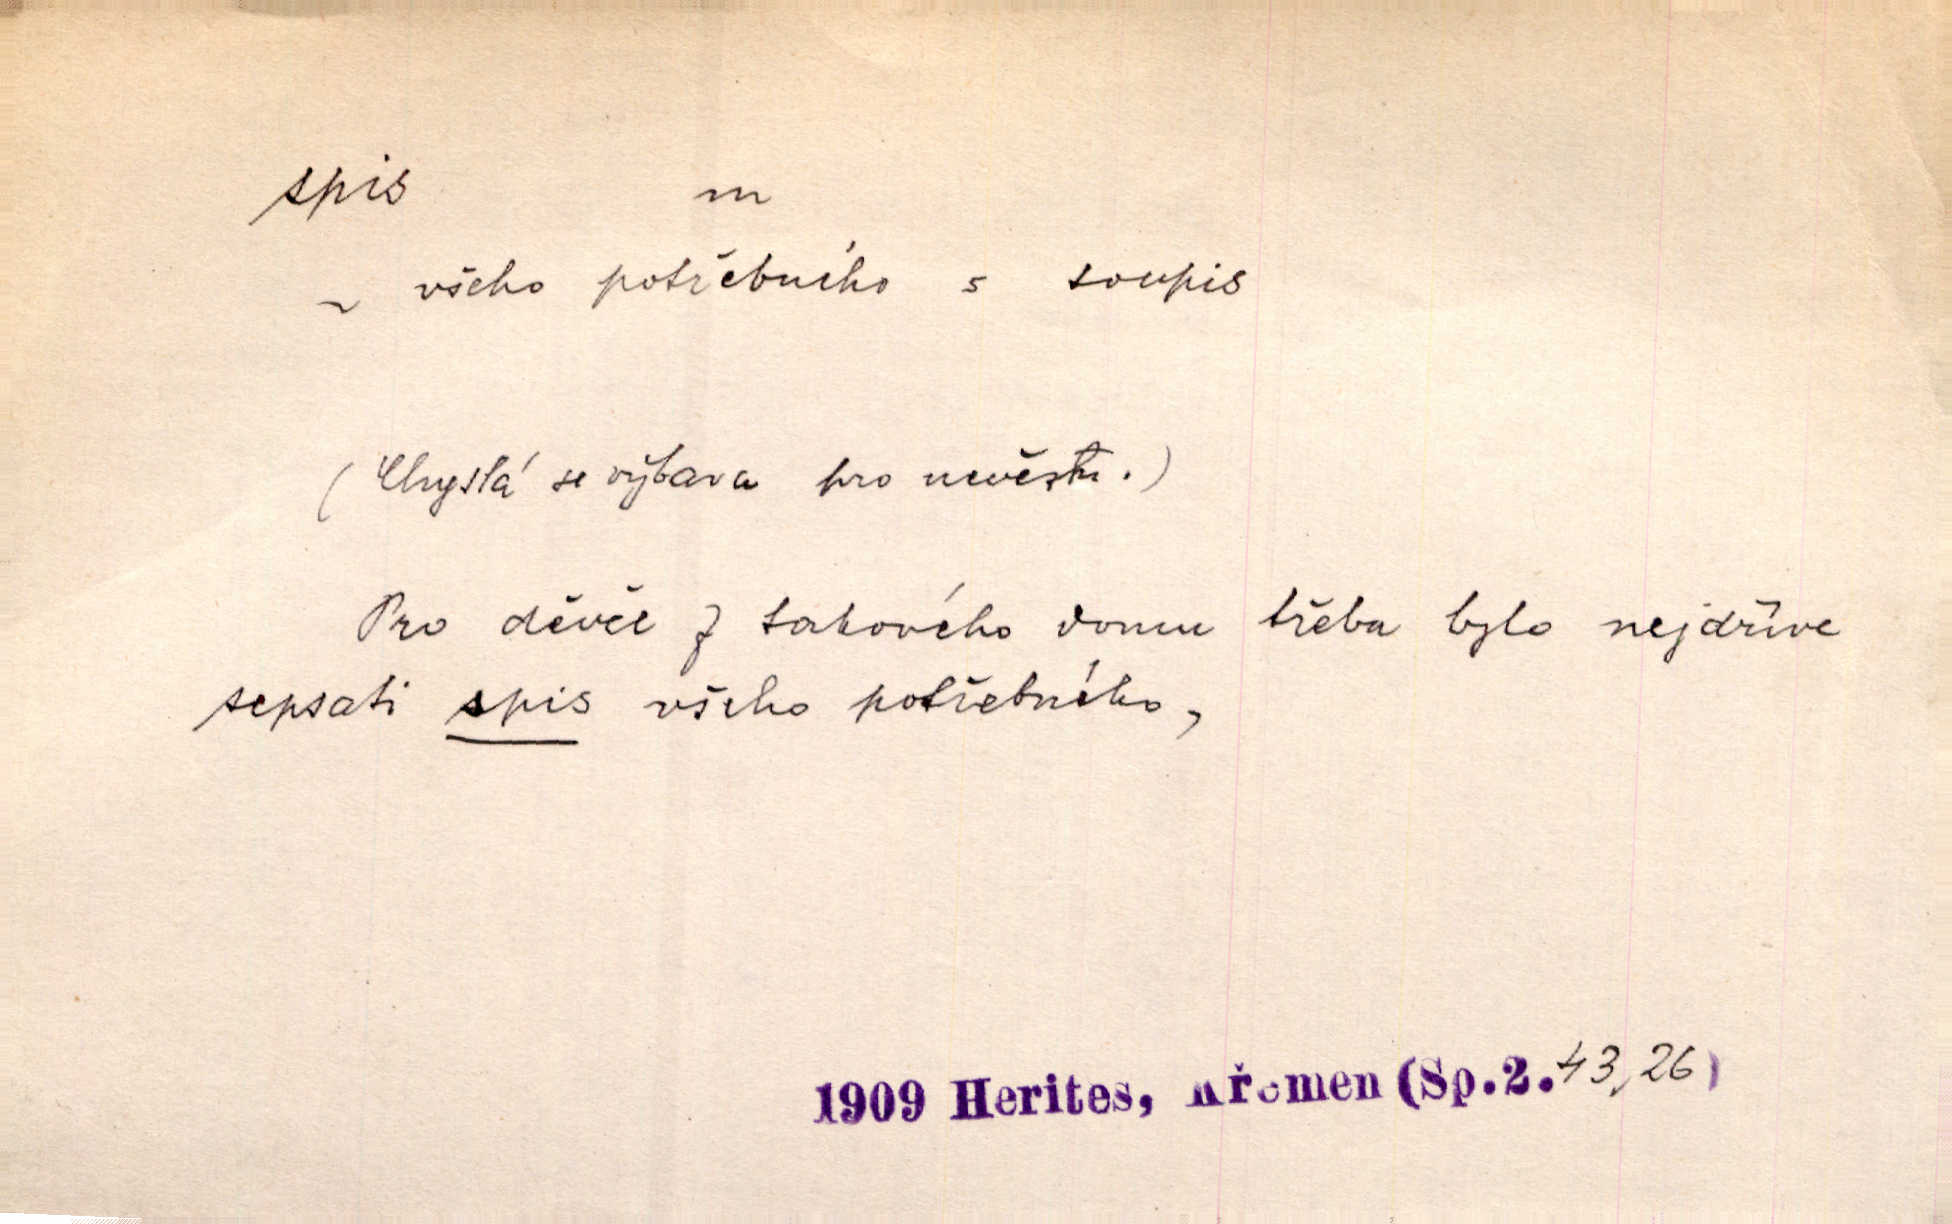 spis m
~ všeho potřebného s soupis
(Chystá se výbava pro nevěstu.)
Pro děvče z takového domu třeba bylo nejdříve
sepsati spis všeho potřebného,
1909 Herites, Křemen (Sp.2.43,26)